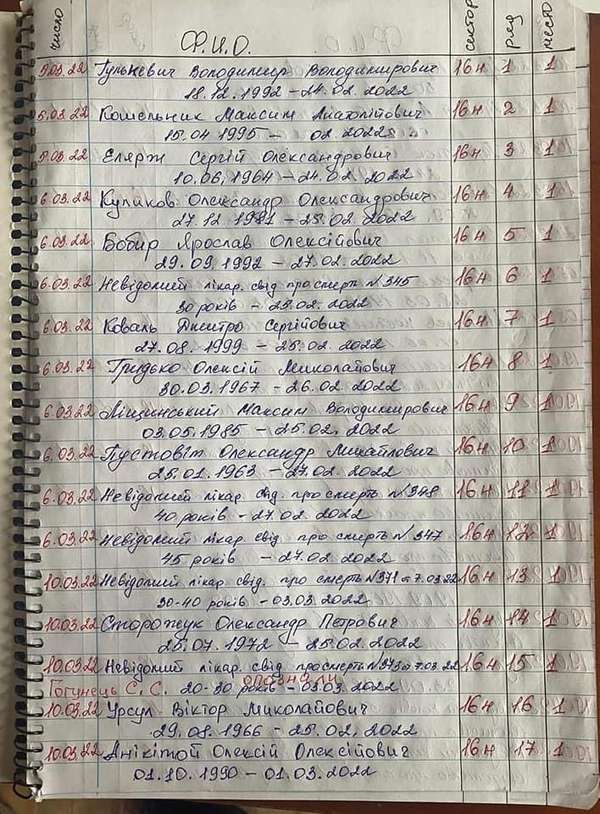 число Ф.И.О. сектор ряд место
5.03.22 Гулькевич Володимир Володимирович 16н 1 1
18.12.1992 – 24.02.2022
5.03.22 Кошельник Максим Анатолійович 16н 2 1
15.04 1995 – 02 2022
5.03.22 Елярж Сергій Олександрович 16н 3 1
10.06.1964 – 24.02.2022
6.03.22 Куликов Олександр Олександрович 16н 4 1
27.12 1981 – 25.02 2022
6.03.22 Бобир Ярослав Олексійович 16н 5 1
29.09.1992 – 27.02.2022
6.03.22 Невідомий лікар. свід про смерть №345 16н 6 1
30 років – 25.02.2022
6.03.22 Коваль Дмитро Сергійович 16н 7 1
27.08.1999 – 25.02.2022
6.03.22 Гридько Олексій Миколайович 16н 8 1
30.03.1967 – 26.02.2022
6.03.22 Ліщинський Максим Володимирович 16н 9 1
03.05.1985 – 25.02.2022
6.03.22 Пустовіт Олександр Михайлович 16н 10 1
25.01.1963 – 27.02.2022
6.03.22 Невідомий лікар. свід. про смерть №348 16н 11 1
40 років – 27.02.2022
6.03.22 Невідомий лікар. свід про смерть № 347 16н 12 1
45 років – 27.02.2022
10.03.22 Невідомий лікар. свід. про смерть №371 от 7.03.22 16н 13 1
30-40 років – 03.03.2022
10.03.22 Сторожук Олександр Петрович 16н 14 1
25.07.1972 – 25.02.2022
10.03.22 Невідомий лікар. свід про смерть №373 от 7.03.22 16н 15 1
опознали
Гогунець С. С. 20-30 років – 03.03.2022
10.03.22 Урсул Віктор Миколайович 16н 16 1
29.08.1966 – 25.02.2022
10.03.22 Анікітой Олексій Олексійович 16н 17 1
01.10.1990 – 01.03.2022